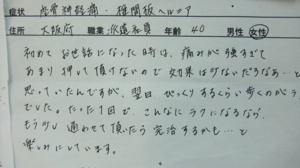 症状 坐骨神経痛・椎間板ヘルニア
住所 大阪府 職業:派遣社員 年齢 40 男性 女性
初めてお世話になった時は、痛みが強すぎて
あまり押して頂けないので効果は少ないだろうなあ…と
思っていたんですが、翌日びっくりするくらい歩くのがラク
でした。たった1回で、こんなにラクになるなら、
もう少し通わせて頂いたら完治するかも…と
楽しみにしています。